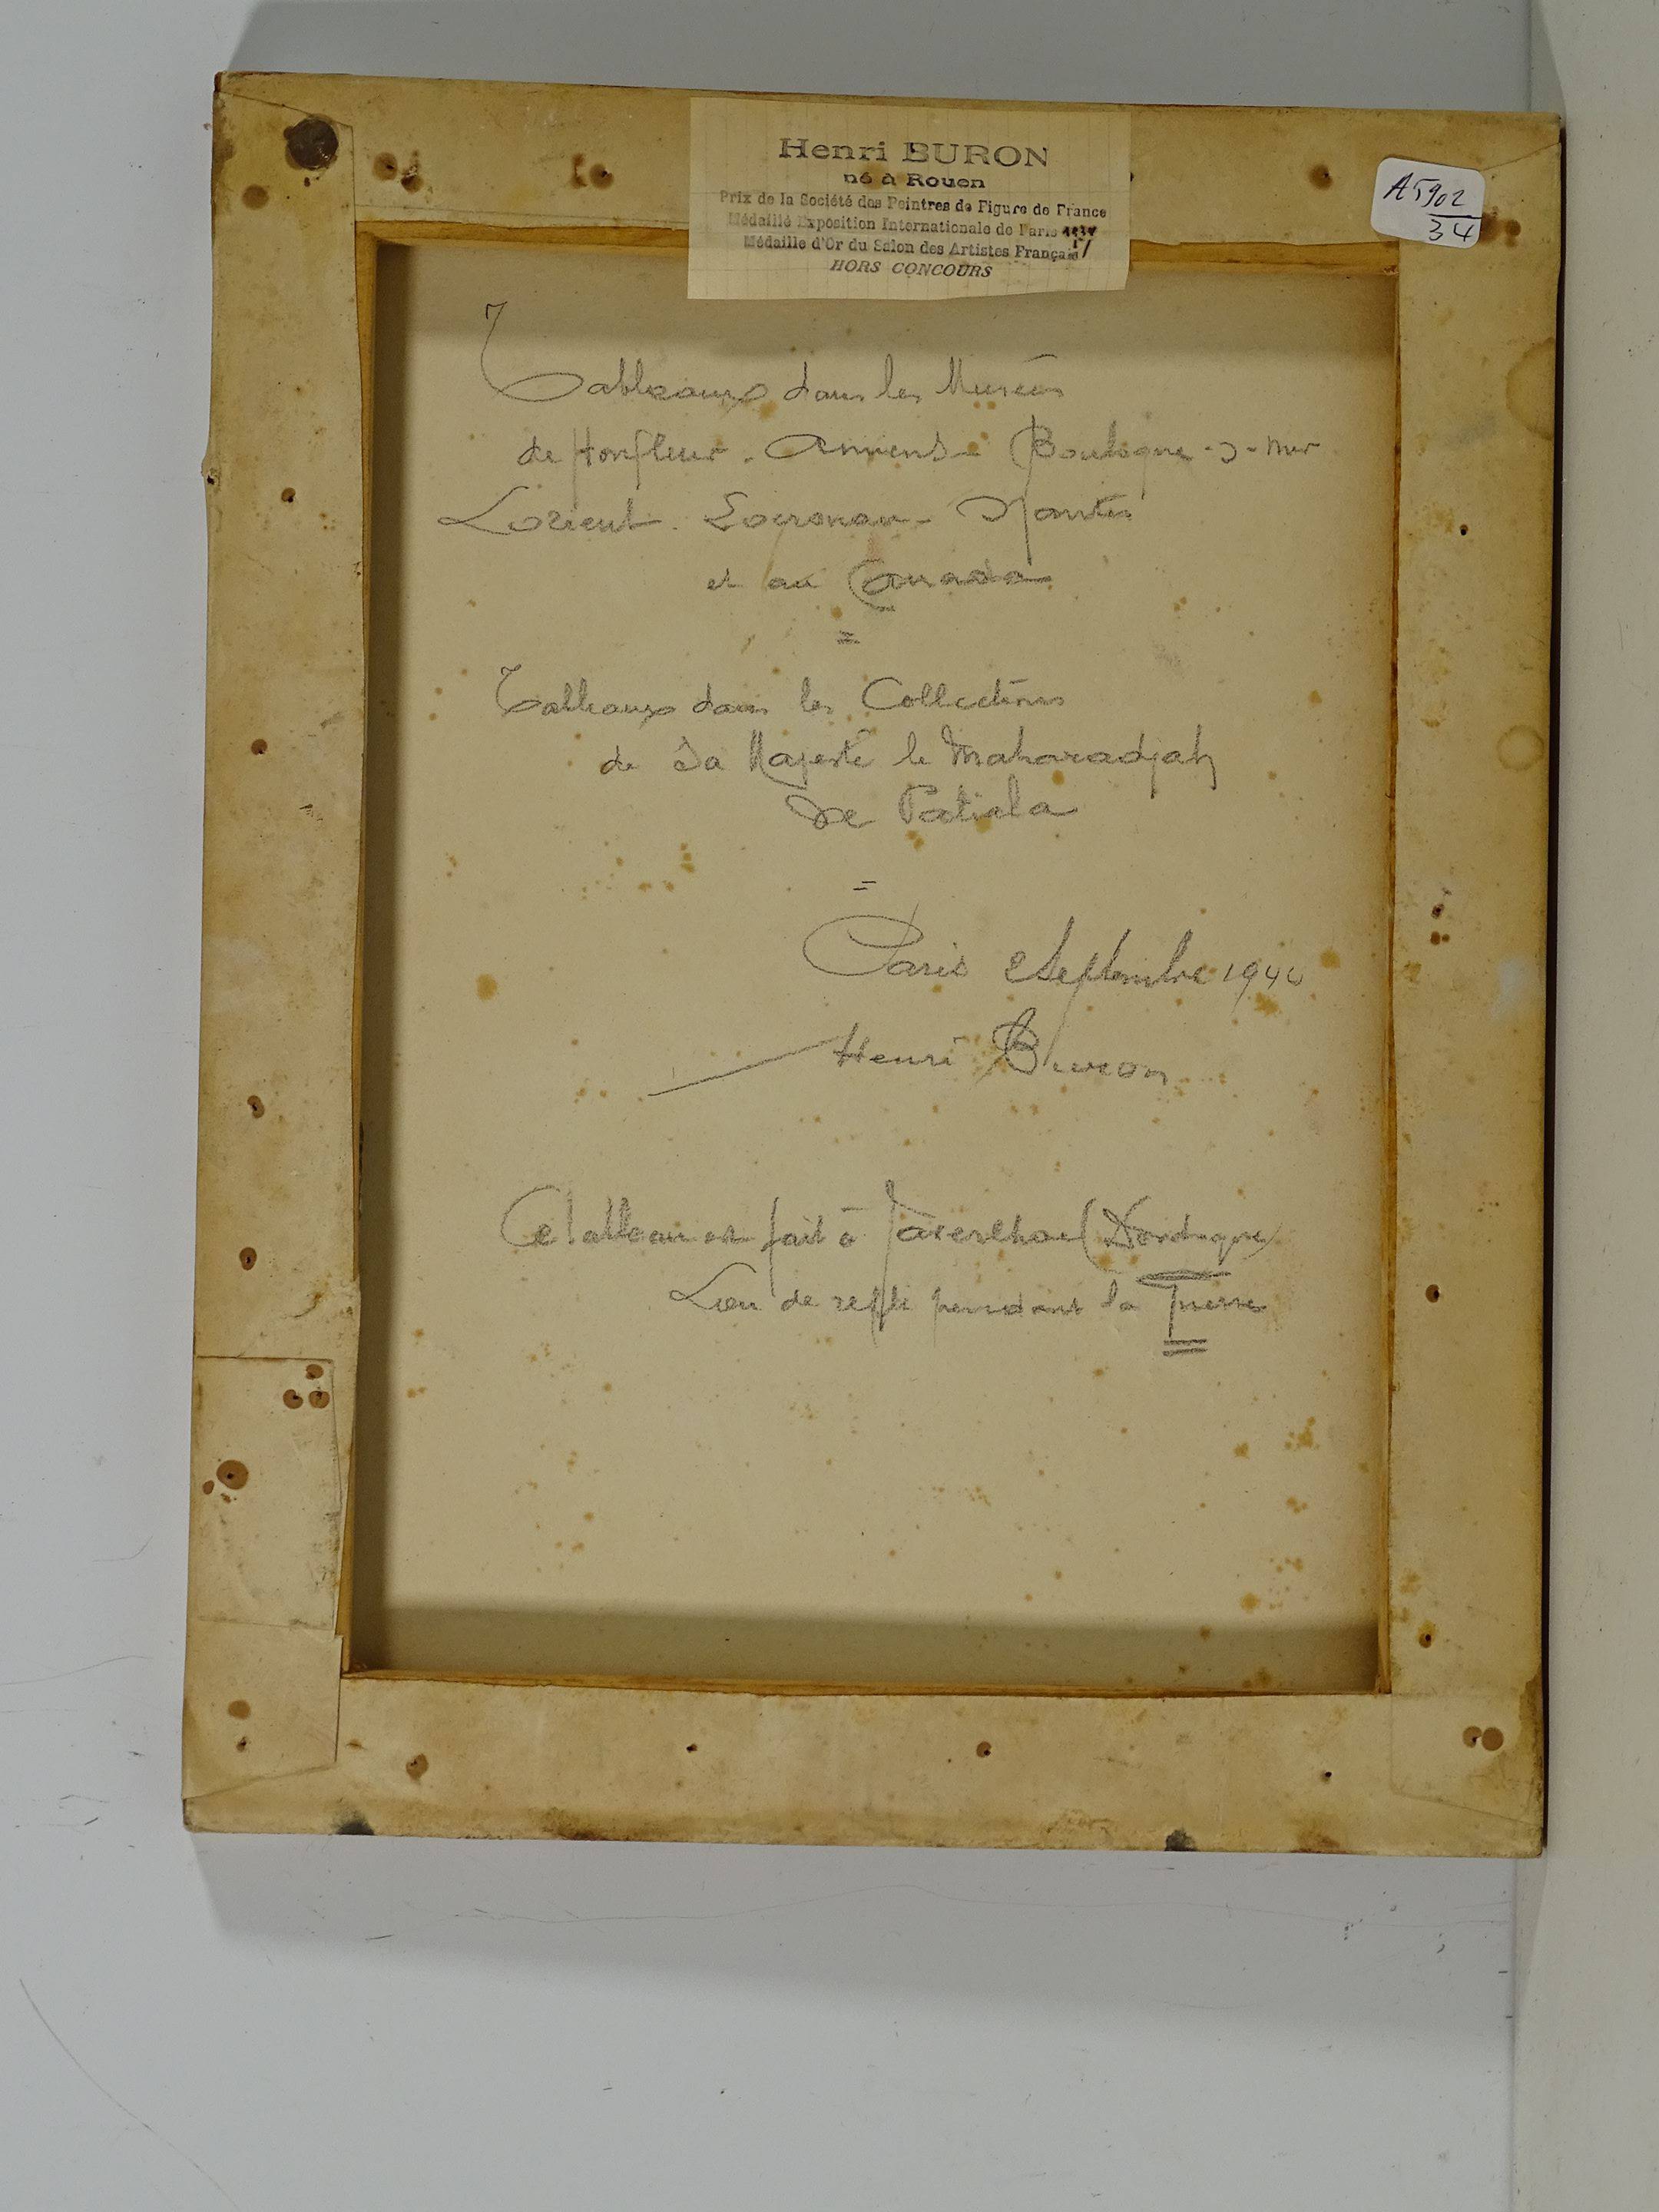 Henri BURON
né à Rouen
Prix de la Société des Peintres de Figure de France
Médaillé Exposition Internationale de Paris
Médaille d'Or du Salon des Artistes Français
HORS CONCOURS
A5902
34
Tableaux dans les Musées
de Honfleur - Amiens - Boulogne-s-mer
Lorient - Locronan - Nantes
et au Canada
=
Tableaux dans les Collections
de Sa Majesté le Maharadjah
de Patiala
=
Paris 2 Septembre 194
Henri Buron
Ce tableau est fait à Javerlhac (Dordogne)
Lieu de repli pendant la Guerre